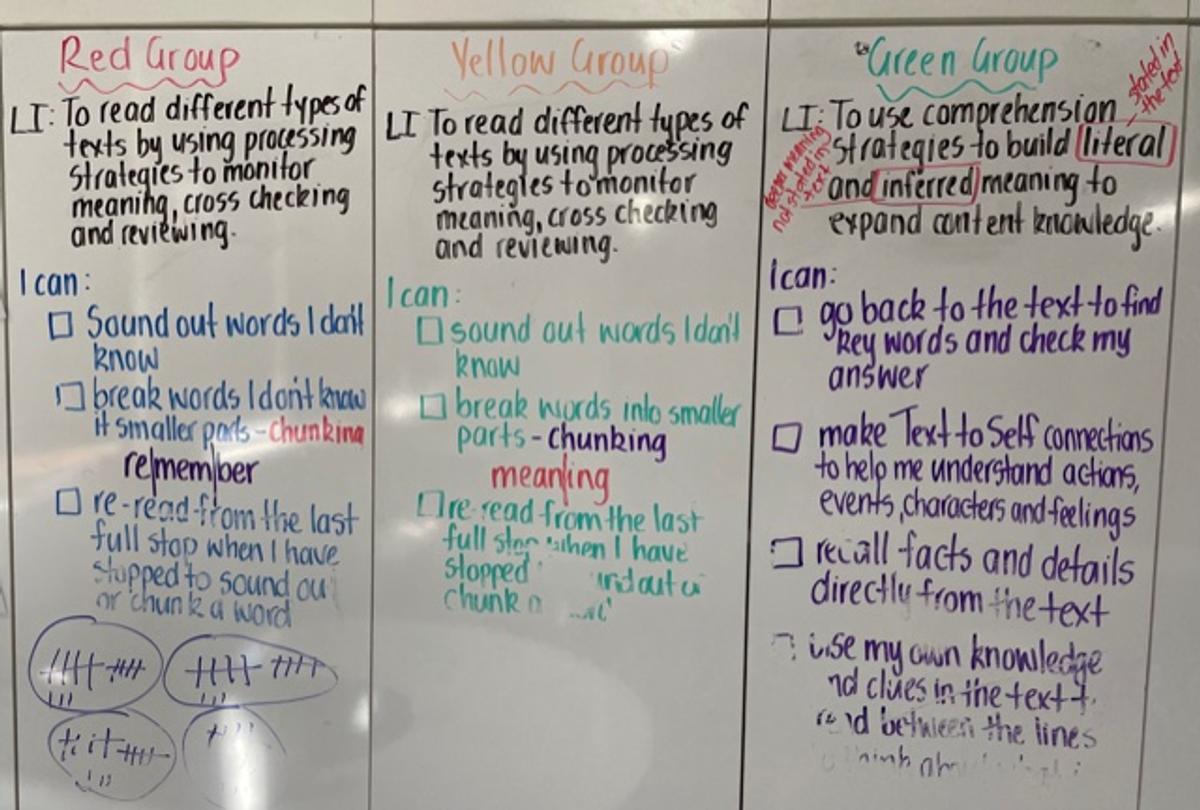 Red Group
LI: To read different types of
texts by using processing
strategies to monitor
meaning, cross checking
and reviewing.
I can:
Sound out words I don't
know
break words I don't know
it smaller parts - chunking
re|mem|ber
re-read from the last
full stop when I have
stopped to sound ou
or chunk a word
Yellow Group
LI To read different types of
texts by using processing
strategies to monitor
meaning, cross checking
and reviewing.
I can:
sound out words I don't
know
break words into smaller
parts - chunking
mean|ing
re-read from the last
full stop when I have
stopped
chunk
Green Group
stated in
the text
LI: To use comprehension
strategies to build literal
and inferred meaning to
expand content knowledge.
meaning
not stated in
text
I can:
go back to the text to find
key words and check my
answer
make Text to Self connections
to help me understand actions,
events, characters and feelings
recall facts and details
directly from the text
use my own knowledge
nd clues in the text t
between the lines